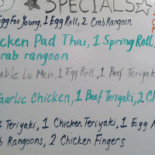 SPECIALS
Egg Foo Young, 1 Egg Roll, 2 Crab Rangoon
cken Pad Thai, 1 Spring Roll,
rab rangoon
able Lo Mein, 1 Egg Roll, 1 Beef Teriyak
arlic Chicken, 1 Beef Teriyaki, 2 C
Teriyaki, 1 Chicken Teriyaki, 1 Egg
b Rangoons, 2 Chicken Fingers